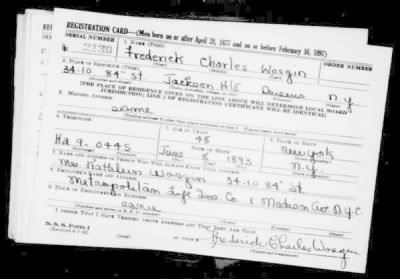 REGISTRATION CARD—(Men born on or after April 28, 1877 and on or before February 16, 1897)
SERIAL NUMBER
1. NAME (Print)
ORDER NUMBER
Frederick Charles Wosgin
2. PLACE OF RESIDENCE (Print)
34-10 84th St Jackson Hts Queens N.Y.
[THE PLACE OF RESIDENCE GIVEN ON THE LINE ABOVE WILL DETERMINE LOCAL BOARD
JURISDICTION; LINE 2 OF REGISTRATION CERTIFICATE WILL BE IDENTICAL]
3. MAILING ADDRESS
same
4. TELEPHONE
5. AGE IN YEARS
6. PLACE OF BIRTH
48
New York
DATE OF BIRTH
Ha 9. 0445
June 8 1893
N.Y.
7. NAME AND ADDRESS OF PERSON WHO WILL ALWAYS KNOW YOUR ADDRESS
Mrs. Kathleen Wosgin 34-10 84th St
8. EMPLOYER'S NAME AND ADDRESS
Metropolitan Life Ins. Co. 1 Madison Ave N.Y.C.
9. PLACE OF EMPLOYMENT OR BUSINESS
same
I AFFIRM THAT I HAVE VERIFIED ABOVE ANSWERS AND THAT THEY ARE TRUE.
D. S. S. Form 1
Frederick Charles Wosgin